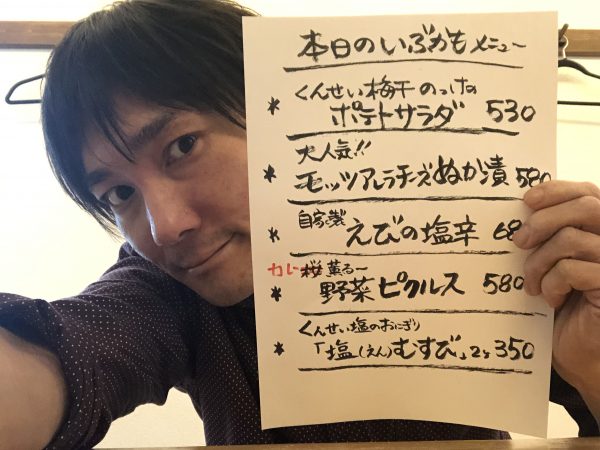 本日のいぶかもメニュー
* くんせい梅干のっけの
ポテトサラダ 530
大人気!!
* モッツアレラチーズぬか漬 580
自家製
* えびの塩辛 68
カレー 薫るー
* 野菜ピクルス 580
くんせい塩のおにぎり
* 「塩(えん)むすび」2コ 350